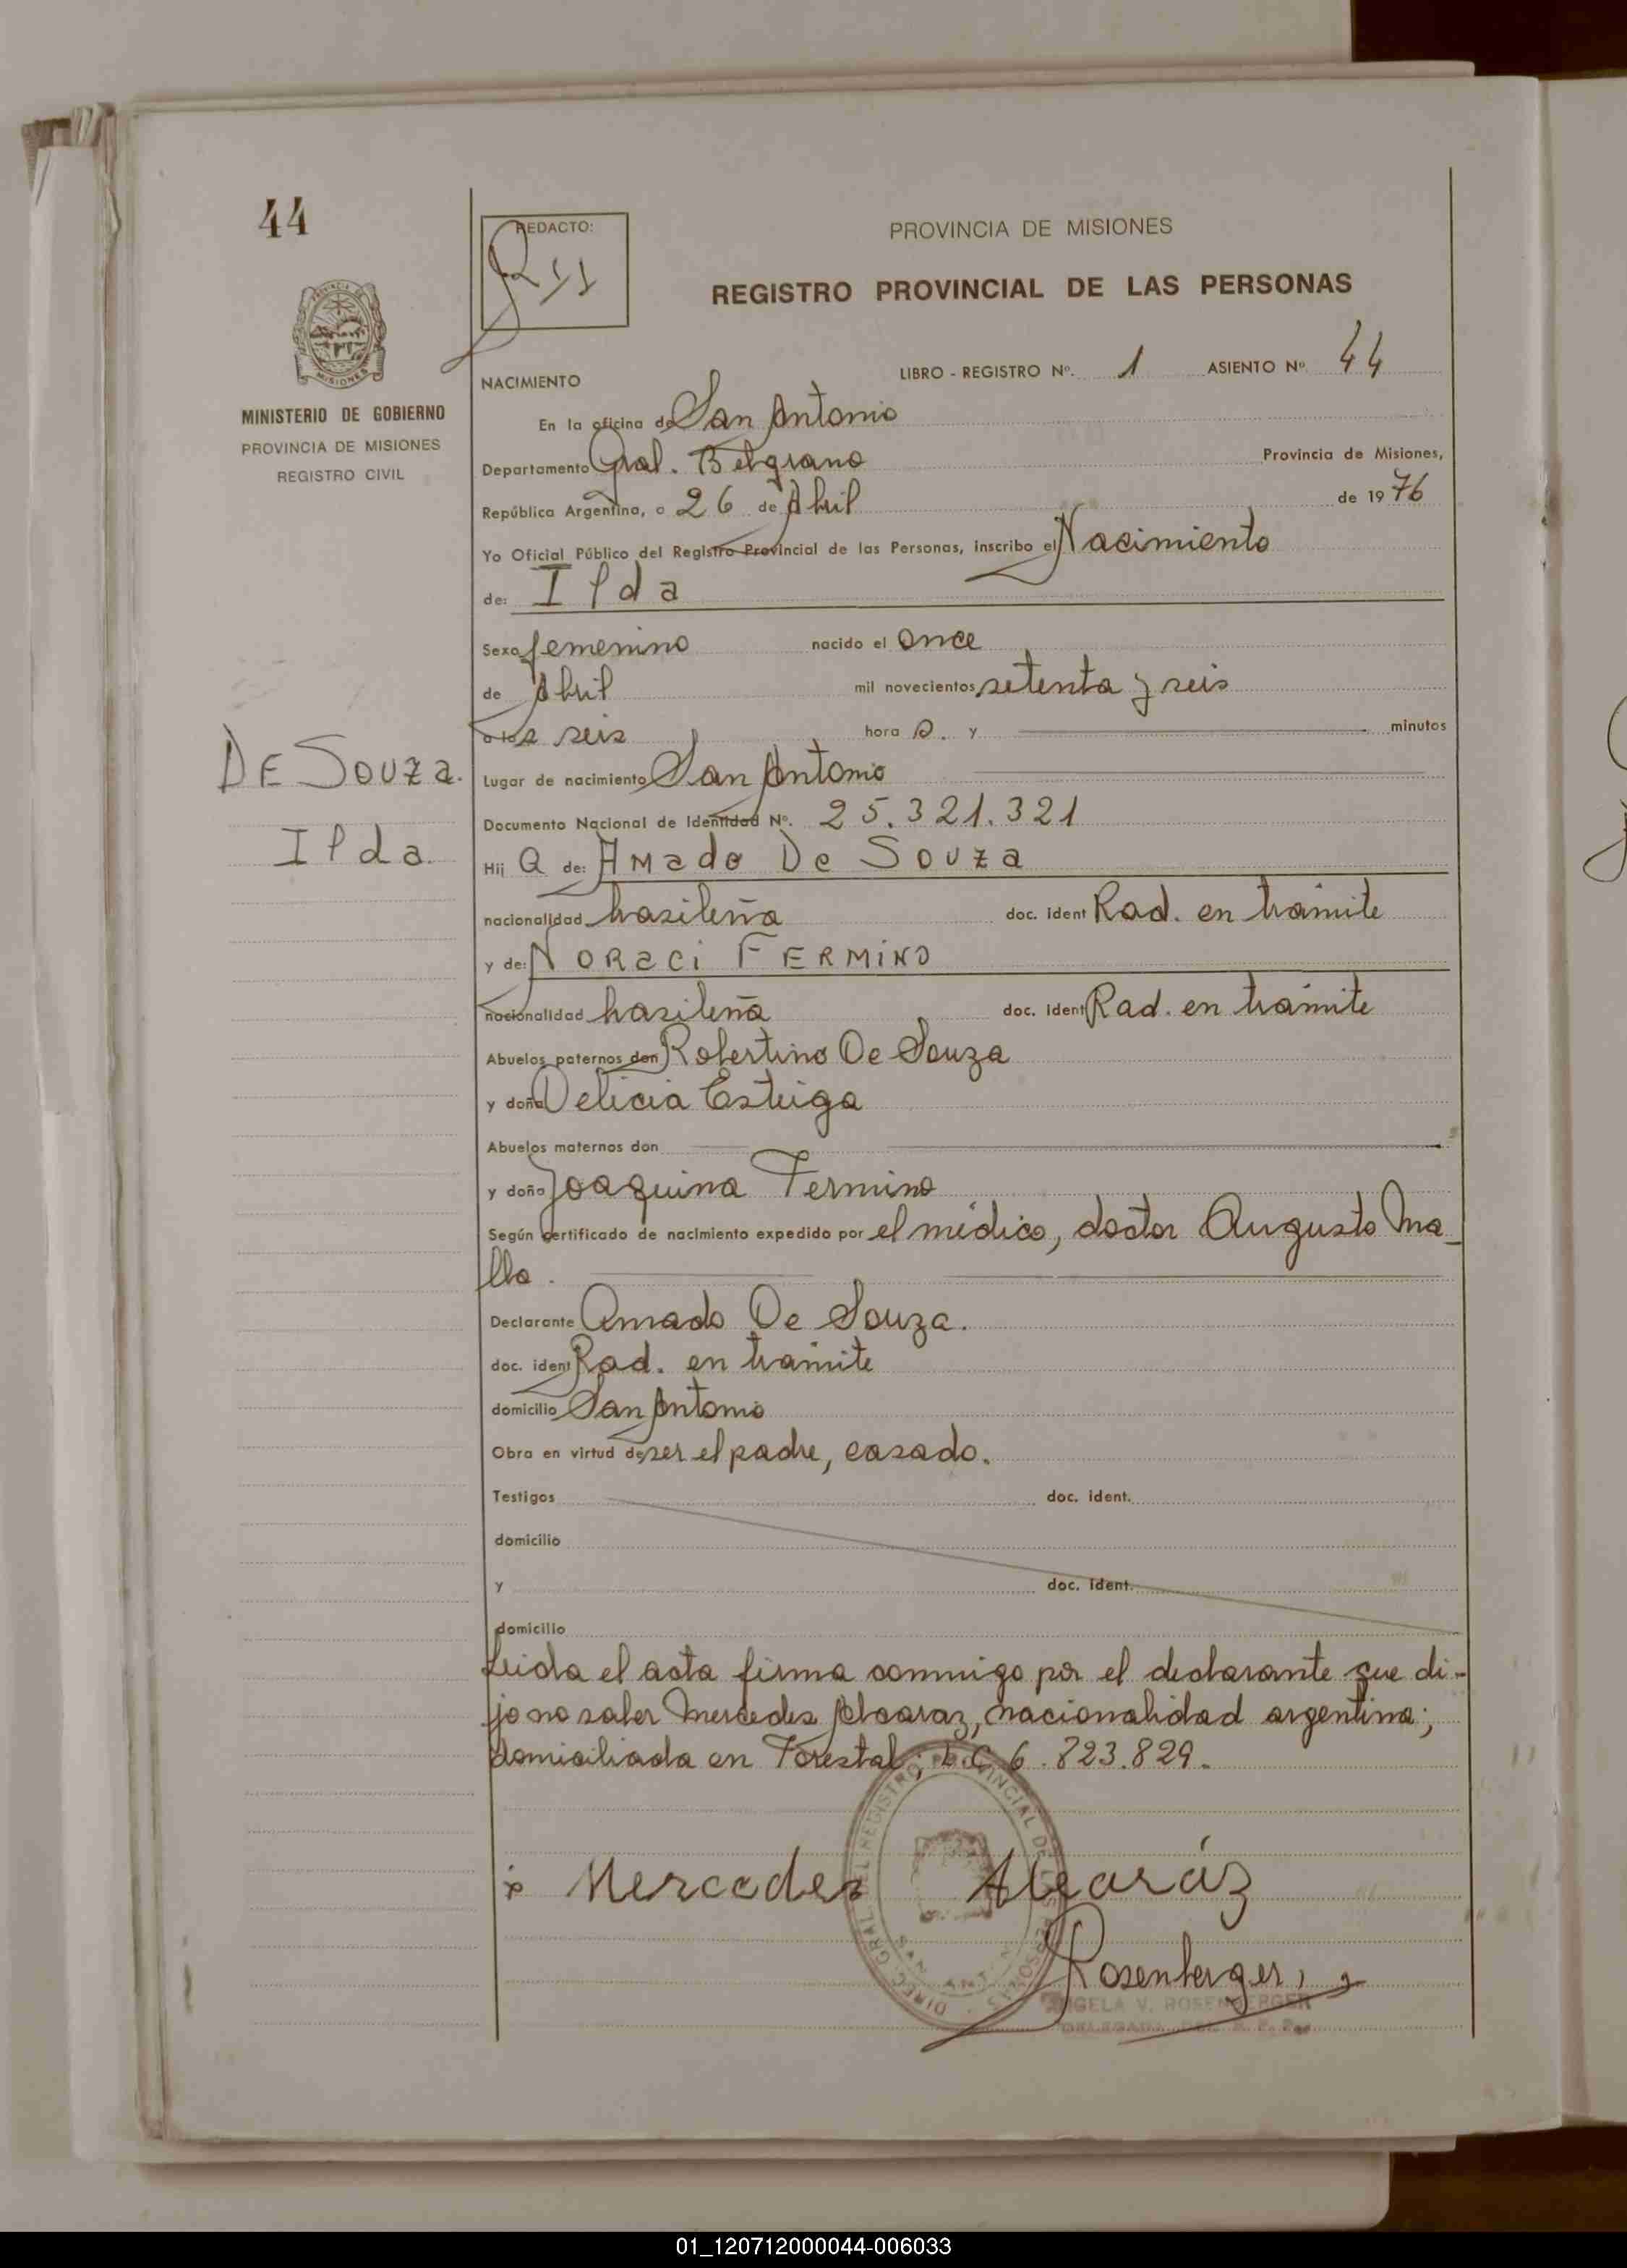 44
REDACTO:
PROVINCIA DE MISIONES
REGISTRO PROVINCIAL DE LAS PERSONAS
MISIONES
MINISTERIO DE GOBIERNO
PROVINCIA DE MISIONES
REGISTRO CIVIL
NACIMIENTO LIBRO - REGISTRO Nº. 1 ASIENTO Nº 44
En la oficina de San Antonio
Departamento Gral. Belgrano Provincia de Misiones,
República Argentina, a 26 de Abril de 1976
Yo Oficial Público del Registro Provincial de las Personas, inscribo el Nacimiento
de: Ilda
Sexo femenino nacido el once
de Abril mil novecientos setenta y seis
a las seis hora s. y minutos
DE SOUZA.
Lugar de nacimiento San Antonio
Documento Nacional de Identidad Nº. 25.321.321
Ilda.
Hij a de: Amado De Souza
nacionalidad brasileña doc. ident Rad. en trámite
y de: NORaci FERMiNO
nacionalidad brasileña doc. ident Rad. en trámite
Abuelos paternos don Robertino De Souza
y doña Delicia Esteiga
Abuelos maternos don
y doña Joaquina Fermino
Según certificado de nacimiento expedido por el médico, doctor Augusto Ma-
lla.
Declarante Amado De Souza.
doc. ident Rad. en trámite
domicilio San Antonio
Obra en virtud de ser el padre, casado.
Testigos doc. ident.
domicilio
y doc. ident.
domicilio
Leida el acta firma conmigo por el declarante que di-
jo no saber Mercedes Alcaraz, nacionalidad argentina;
domiciliada en Forestal; L.C 6.823.829.
Mercedes Alcaráz
Rosenberger
ANGELA V. ROSENBERGER
DELEGADA DEL R. P. P.
01_120712000044-006033